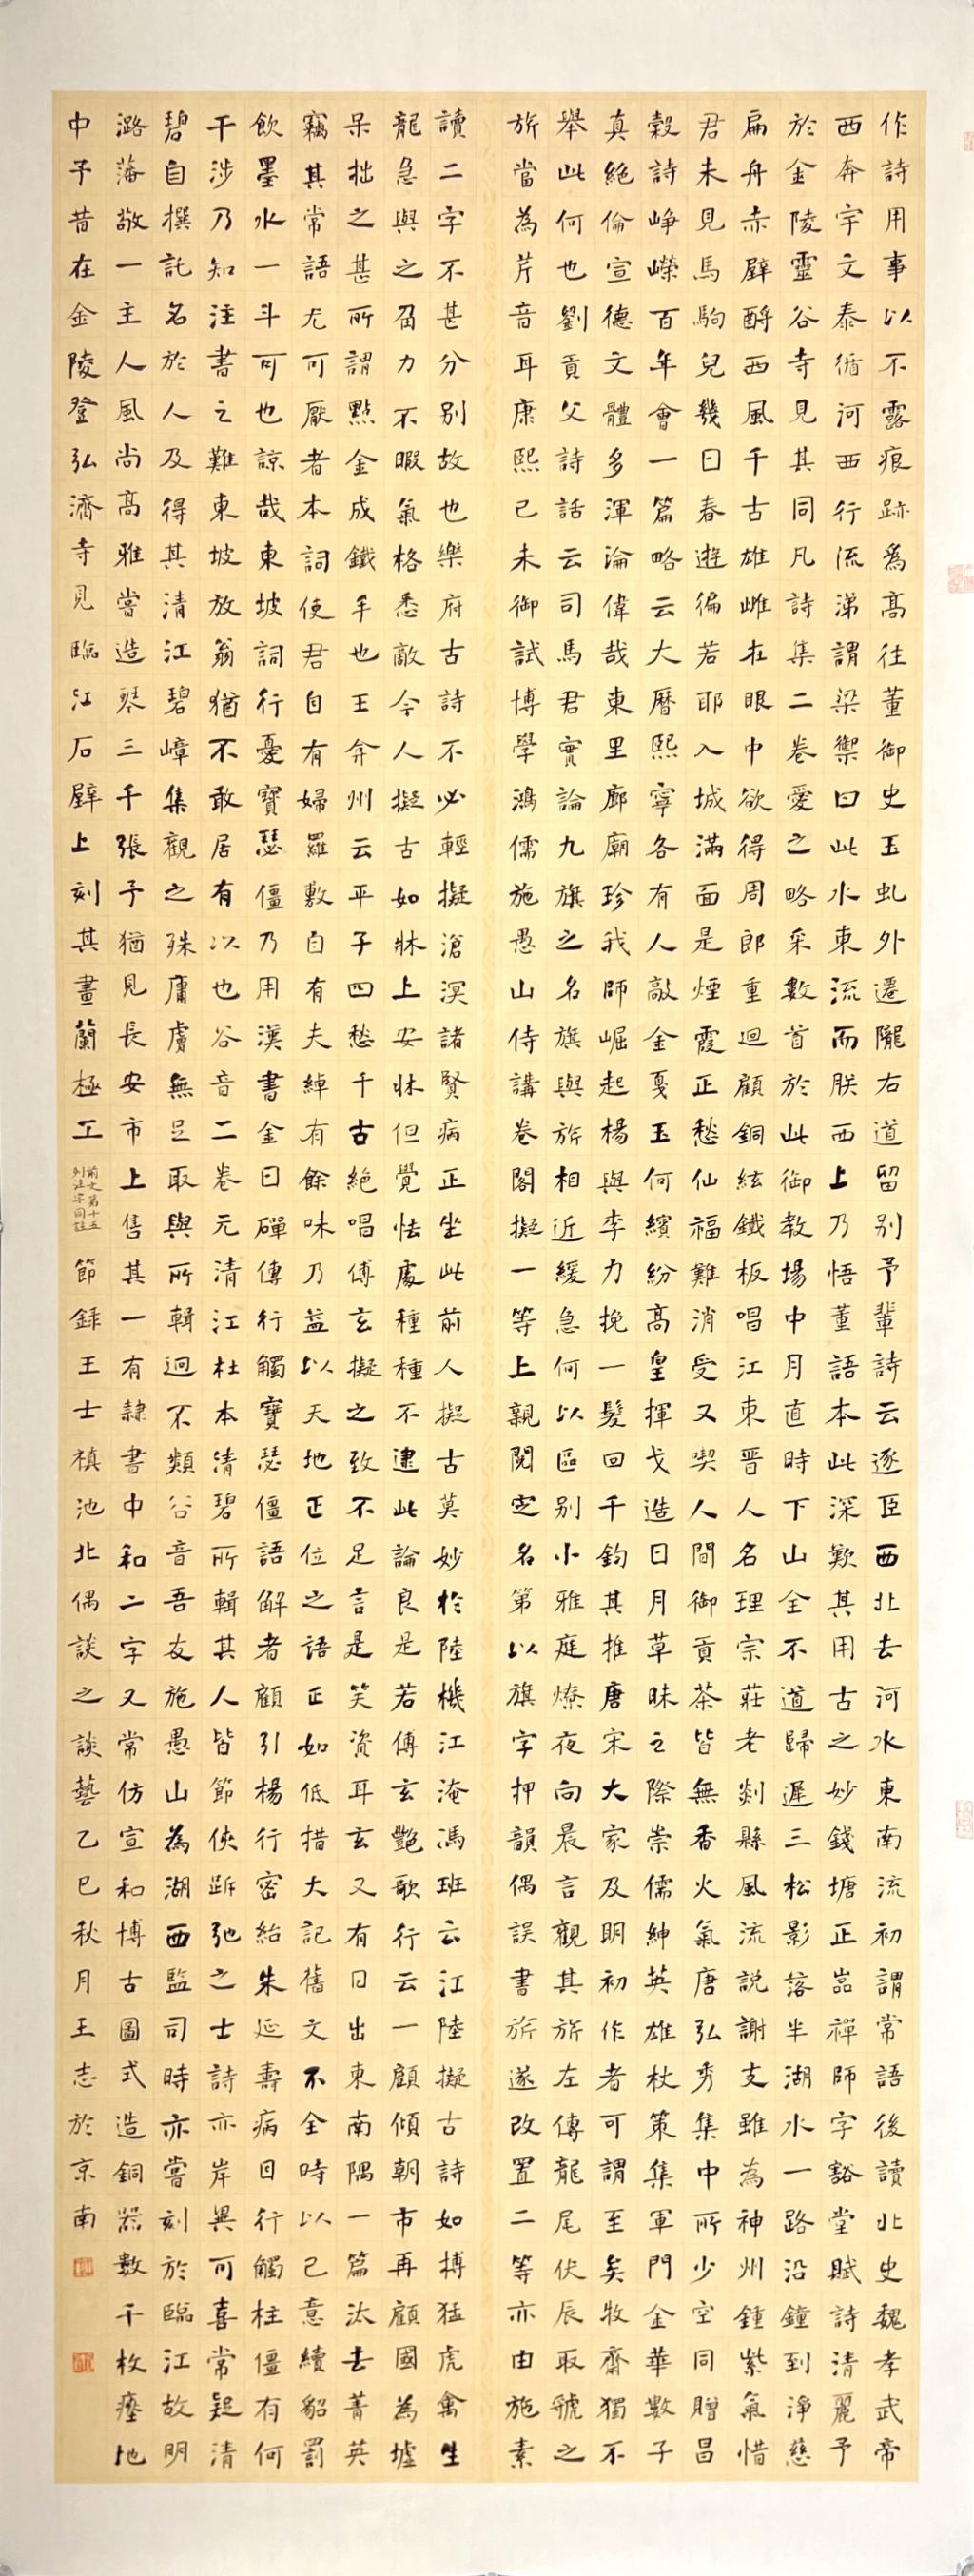 作詩用事以不露痕跡為高往董御史玉虬外遷隴右道留別予輩詩云逐臣西北去河水東南流初謂常語後讀北史魏孝武帝
西奔宇文泰循河西行流涕謂梁禦曰此水東流而朕西上乃悟董語本此深歎其用古之妙錢塘正嵒禪師字豁堂賦詩清麗予
於金陵靈谷寺見其同凡詩集二卷愛之略采數首於此御教場中月直時下山全不道歸遲三松影落半湖水一路沿鐘到淨慈
扁舟赤壁酹西風千古雄雌在眼中欲得周郎重迴顧銅絃鐵板唱江東晋人名理宗莊老剡縣風流說謝支雖為神州鍾紫氣惜
君未見馬駒兒幾日春遊徧若耶入城滿面是煙霞正愁仙福難消受又喫人間御貢茶皆無香火氣唐弘秀集中所少空同贈昌
穀詩崢嶸百年會一篇略云大曆熙寧各有人敲金戛玉何繽紛高皇揮戈造日月草昧之際崇儒紳英雄杖策集軍門金華數子
真絕倫宣德文體多渾淪偉哉東里廊廟珍我師崛起楊與李力挽一髮回千鈞其推唐宋大家及明初作者可謂至矣牧齋獨不
舉此何也劉貢父詩話云司馬君實論九旗之名旗與旂相近緩急何以區别小雅庭燎夜向晨言觀其旂左傳龍尾伏辰取虢之
旂當為芹音耳康熙己未御試博學鴻儒施愚山侍講卷閣擬一等上親閱定名第以旗字押韻偶誤書旂遂改置二等亦由施素
讀二字不甚分别故也樂府古詩不必輕擬滄溟諸賢病正坐此前人擬古莫妙於陸機江淹馮班云江陸擬古詩如搏猛虎禽生
龍急與之角力不暇氣格悉敵今人擬古如牀上安牀但覺怯處種種不逮此論良是若傅玄豔歌行云一顧傾朝市再顧國為墟
呆拙之甚所謂點金成鐵手也王弇州云平子四愁千古絕唱傅玄擬之致不足言是笑資耳玄又有日出東南隅一篇汰去菁英
竊其常語尤可厭者本詞使君自有婦羅敷自有夫綽有餘味乃益以天地正位之語正如低措大記舊文不全時以己意續貂罰
飲墨水一斗可也諒哉東坡詞行憂寶瑟僵乃用漢書金日磾傳行觸寶瑟僵語解者顧引楊行密紿朱延壽病目行觸柱僵有何
干涉乃知注書之難東坡放翁猶不敢居有以也谷音二卷元清江杜本清碧所輯其人皆節俠跅弛之士詩亦岸異可喜常疑清
碧自撰託名於人及得其清江碧嶂集觀之殊庸膚無足取與所輯迥不類谷音吾友施愚山為湖西監司時亦嘗刻於臨江故明
潞藩敬一主人風尚高雅嘗造琴三千張予猶見長安市上售其一有隸書中和二字又常仿宣和博古圖式造銅器數千枚瘞地
中予昔在金陵登弘濟寺見臨江石壁上刻其畫蘭極工
前文第十五
列注字同註
節錄王士禛池北偶談之談藝乙巳秋月王志於京南